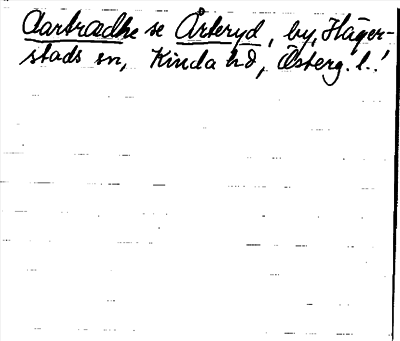 Aartradhe se Årteryd, by, Häger-
stads sn, Kinda hd, Österg. l.!